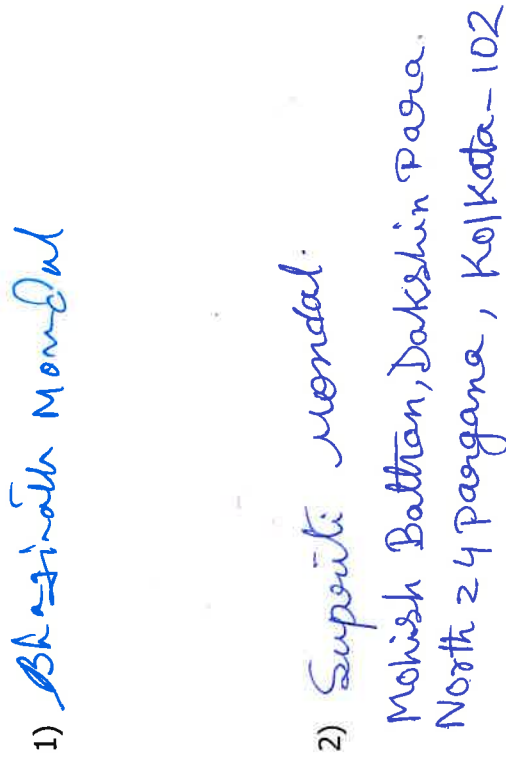 1) Bhagirath Mondal
2) Supriti Mondal.
Mohish Batthan, Dakshin Para.
North 24 Pargana, Kolkata-102